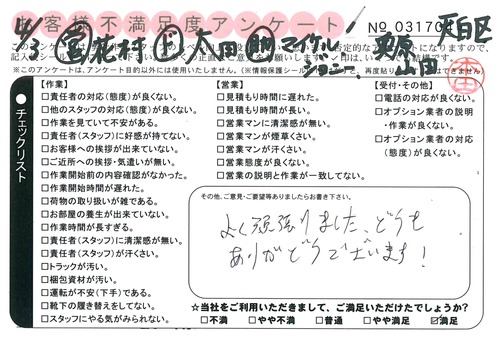 お客様不満足度アンケート
No 03170
天白区
4/3 花村 太田 マイケル ジョニー 東原 山田
チェックリスト
【作業】
□責任者の対応(態度)が良くない。
□他のスタッフの対応(態度)が良くない。
□作業を見ていて不安がある。
□責任者(スタッフ)に好感が持てない。
□お客様への挨拶が出来ていない。
□ご近所への挨拶・気遣いが無い。
□作業開始前の内容確認がなかった。
□作業開始時間が遅れた。
□荷物の取り扱いが雑である。
□お部屋の養生が出来ていない。
□作業時間が長すぎる。
□責任者(スタッフ)に清潔感が無い。
□責任者(スタッフ)が汗くさい。
□トラックが汚い。
□梱包資材が汚い。
□運転が不安(下手)である。
□靴下の履き替えをしてない。
□スタッフにやる気がみられない。
【営業】
□見積もり時間に遅れた。
□見積もり時間が長い。
□営業マンに清潔感が無い。
□営業マンが煙草くさい。
□営業マンが汗くさい。
□営業態度が良くない。
□営業の説明と作業が一致してない。
【受付・その他】
□電話の対応が良くない。
□オプション業者の説明
・作業が良くない。
□オプション業者の対応
(態度)が良くない。
その他、ご意見・ご要望等ありましたらお書き下さい。
よく頑張りました、どうも
ありがどうございます!
☆当社をご利用いただきまして、ご満足いただけたでしょうか?
□不満 □やや不満 □普通 □やや満足 ☑満足